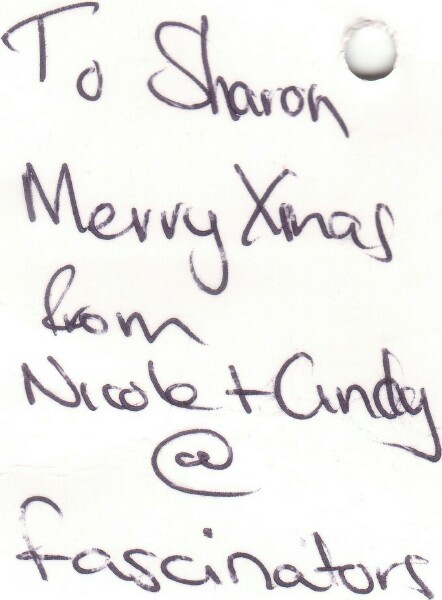 To Sharon
Merry Xmas
from
Nicole + Cindy
@
Fascinators